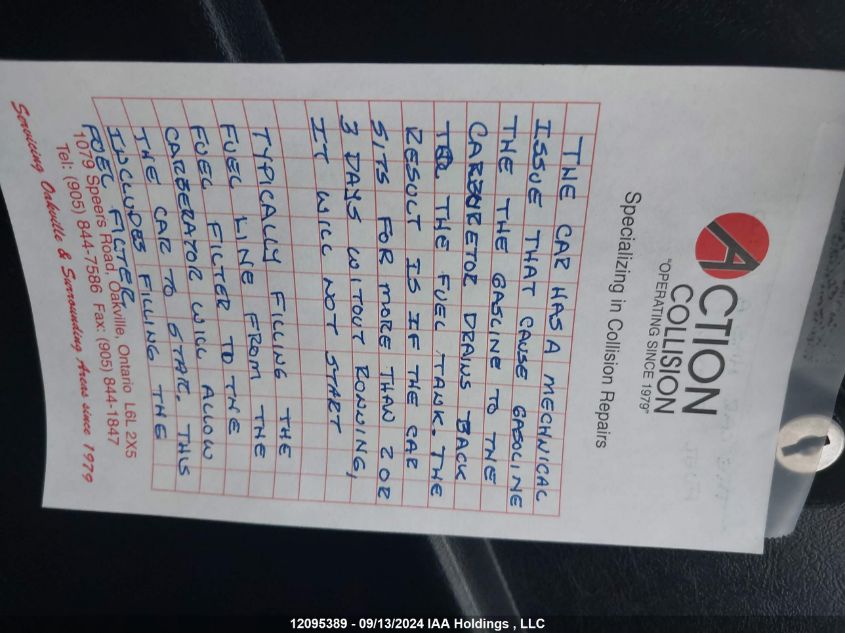 ACTION
COLLISION
"OPERATING SINCE 1979"
Specializing in Collision Repairs
THE CAR HAS A MECHNICAL
ISSUE THAT CAUSE GASOLINE
THE THE GASLINE TO THE
CARBURETOR DRAINS BACK
TO THE FUEL TANK. THE
RESULT IS IF THE CAR
SITS FOR MORE THAN 2 OR
3 DAYS WITOUT RUNNING,
IT WILL NOT START
TYPICALLY FILLING THE
FUEL LINE FROM THE
FUEL FILTER TO THE
CARBERATOR WILL ALLOW
THE CAR TO STAR. THIS
INCLUDES FILLING THE
FUEL FILTER
1079 Speers Road, Oakville, Ontario L6L 2X5
Tel: (905) 844-7586 Fax: (905) 844-1847
Servicing Oakville & Surrounding Areas since 1979
12095389 - 09/13/2024 IAA Holdings , LLC